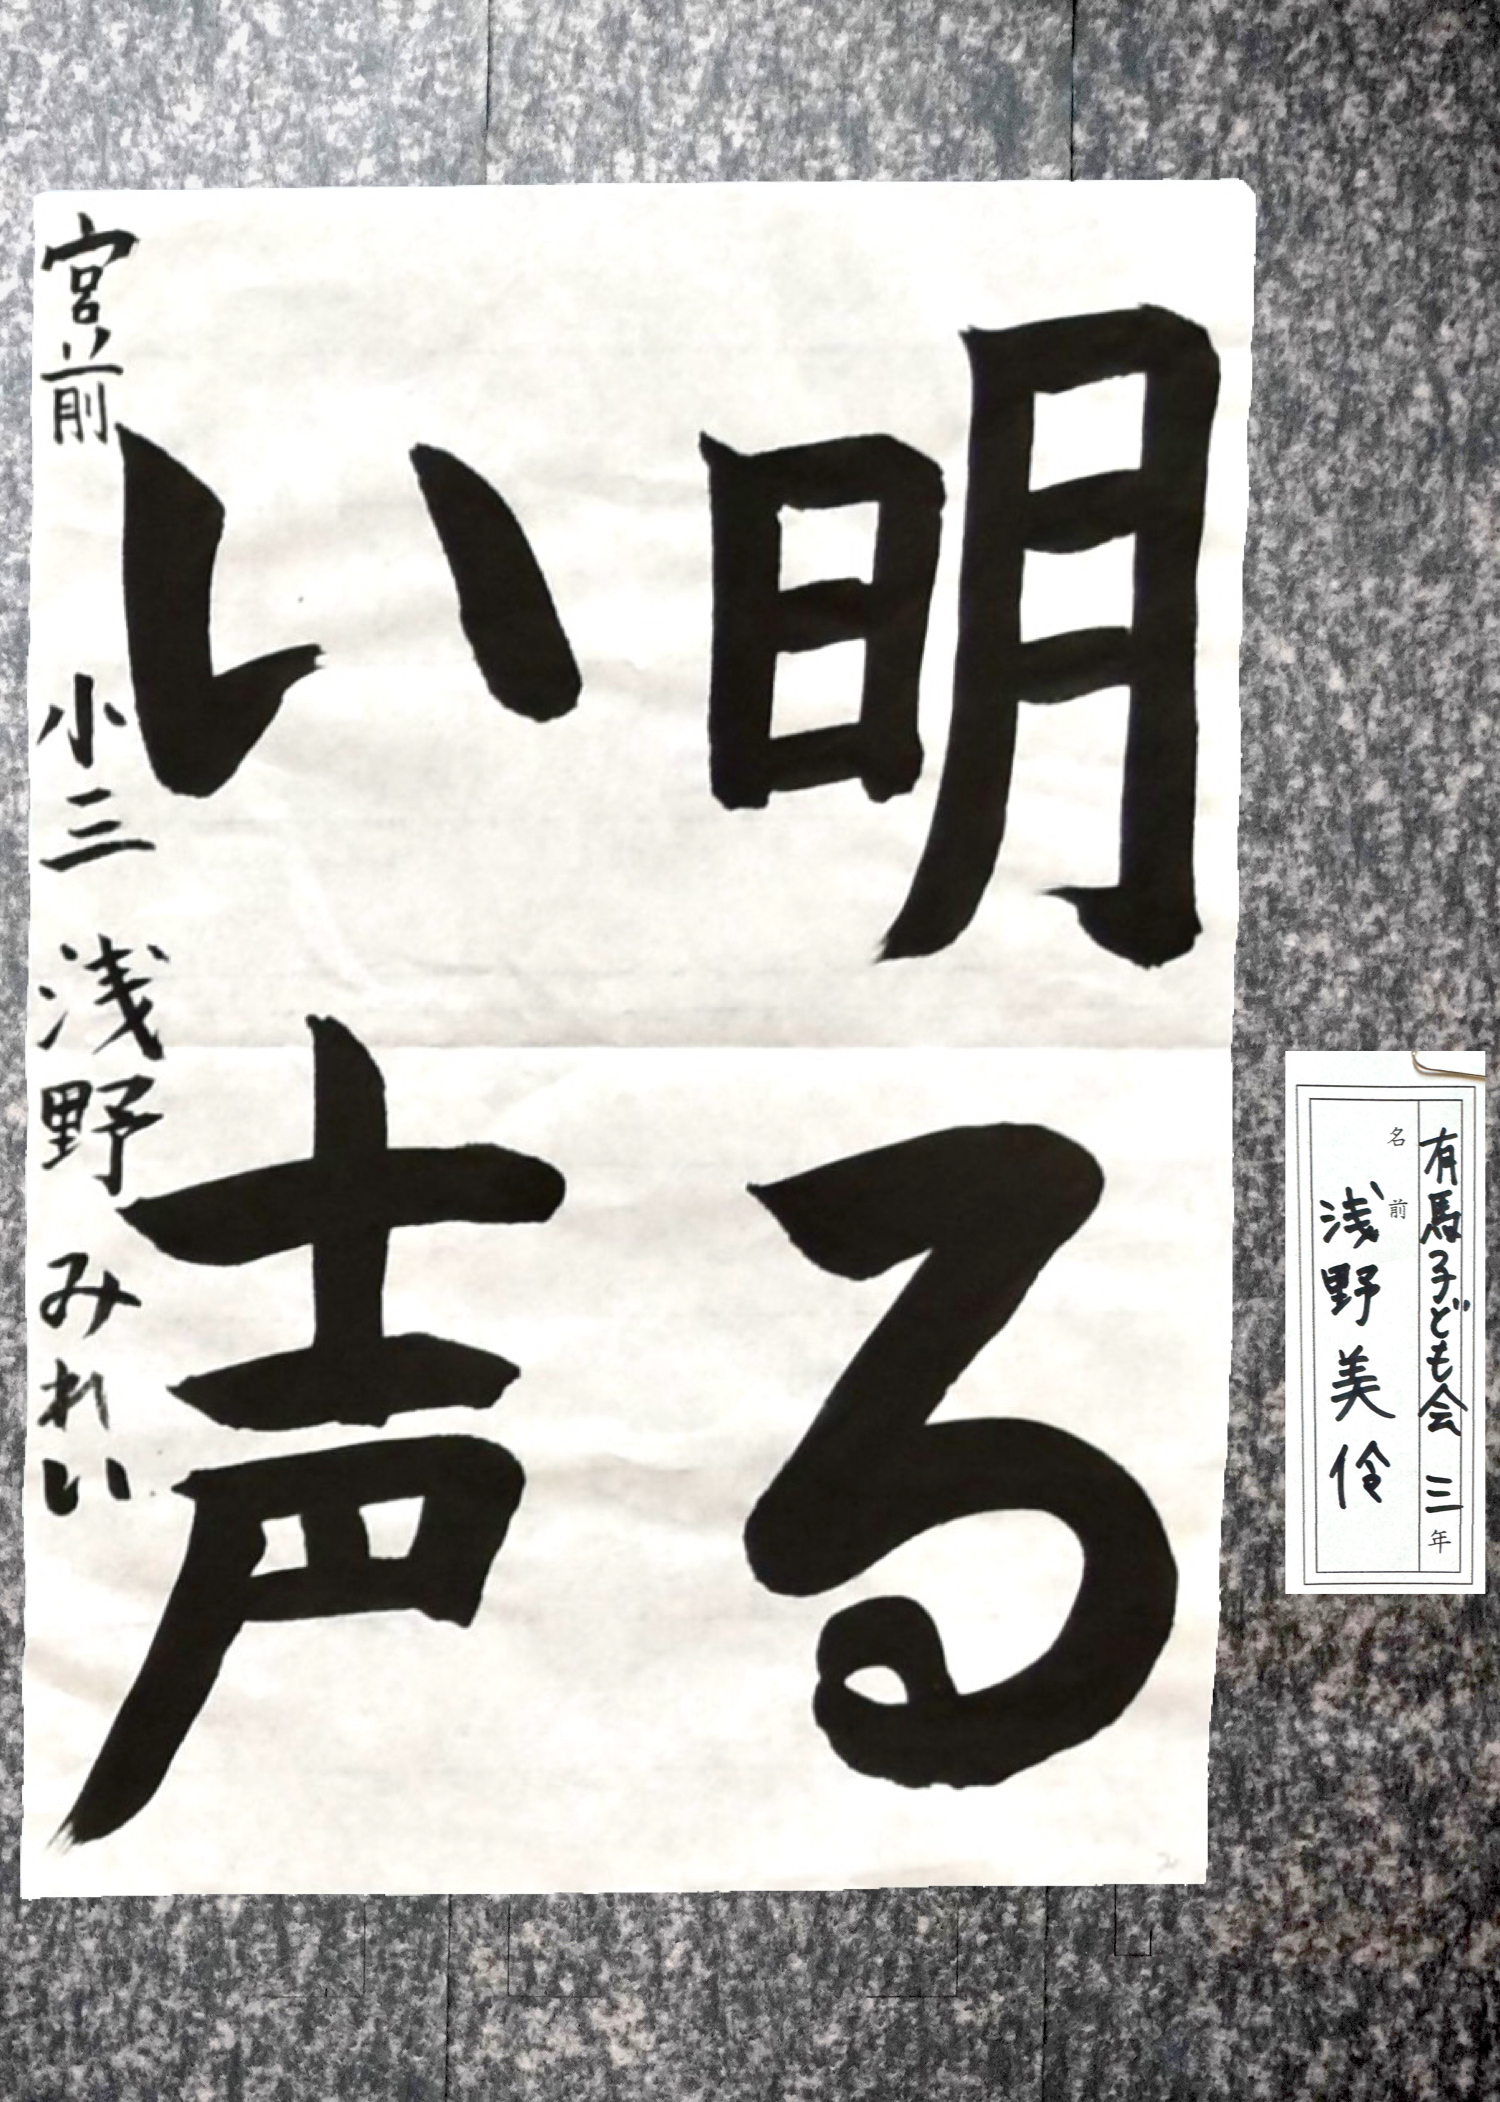 明る
い声
宮前 小三 浅野 みれい
有馬子ども会 三年
名前
浅野美伶